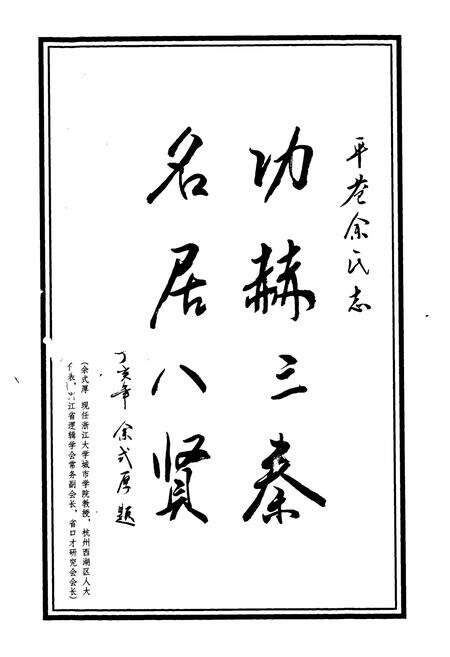 平巷余氏志
功赫三秦
名居八贤
丁亥年 余式厚题
(余式厚 现任浙江大学城市学院教授，杭州西湖区人大
代表，浙江省逻辑学会常务副会长，省口才研究会会长)